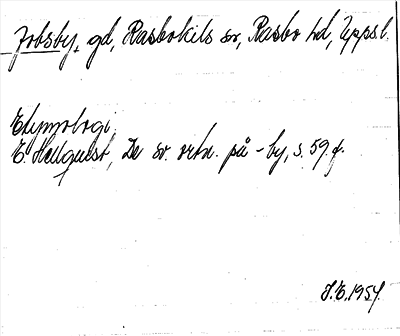 Jobsby, gd, Rasbokils sn, Rasbo hd, Uppsl.
Etymologi,
E. Hellquist, De sv. ortn. på -by, s. 59 f.
S.E. 1954.